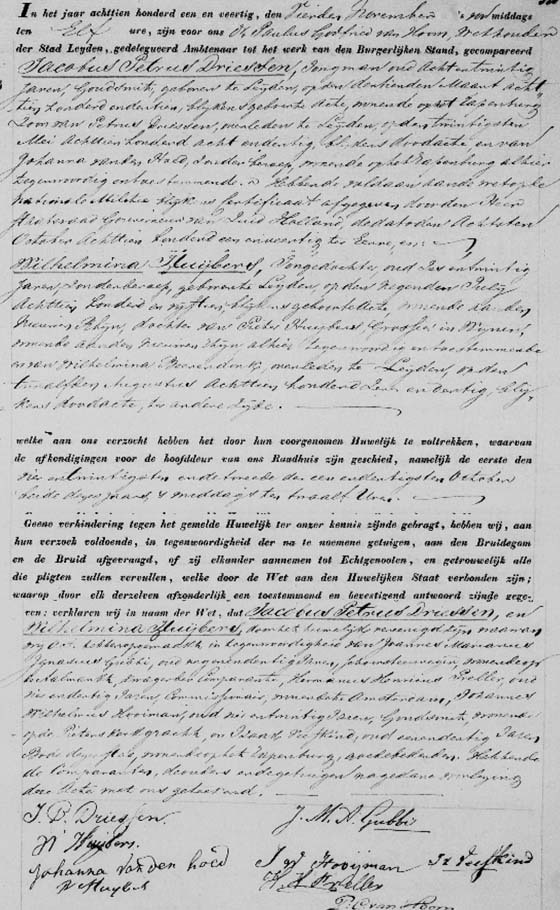 In het jaar achttien honderd een en veertig, den Tienden November 's voormiddags
ten Elf ure, zijn voor ons Paulus Godfried van Hoorn, Wethouder
der Stad Leyden, gedelegueerd Ambtenaar tot het werk van den Burgerlijken Stand, gecompareerd
Jacobus Petrus Driessen, Jongman oud Acht en twintig
Jaren, Goudsmit, geboren te Leyden, op den dertienden Maart acht
tien honderd en dertien, blijkens geboorte Acte, wonende op het Utpenburg
Zoon van Petrus Driessen, overleden te Leyden, op den twintigsten
Mei Achttien honderd acht en dertig, blijkens doodacte, en van
Johanna van den Hoed, zonder beroep, wonende op het alhier
tegenwoordig en toestemmende. Hebbende voldaan aan de wet op de
Nationale Militie blijkens certificaat afgegeven door den Heer
Staatsraad Gouverneur van Zuid Holland, de dato den Achtsten
October Achttien honderd een en veertig ter Eenre, en
Wilhelmina Huijbers, Jongedochter, oud Zes en twintig
Jaren, zonder beroep, geboren te Leyden, op den negenden July
Achttien honderd en vijftien, blijkens geboorteacte, wonende aan den
Nieuwen Rhyn, Dochter van Pieter Huijbers, Grossier in Wijnen,
wonende aan den Nieuwen Rhyn alhier tegenwoordig en toestemmende
en van Wilhelmina, overleden te Leyden, op den
twaalfden Augustus Achttien honderd en dertig, blij
kens doodacte, ter andere Zijde.
welke aan ons verzocht hebben het door hun voorgenomen Huwelijk te voltrekken, waarvan
de afkondigingen voor de hoofddeur van ons Raadhuis zijn geschied, namelijk de eerste den
vier en twintigsten en de tweede den een en dertigsten October
beide dezes jaars, 's middags ten twaalf Ure.
Geene verhindering tegen het gemelde Huwelijk ter onzer kennis zijnde gebragt, hebben wij, aan
hun verzoek voldoende, in tegenwoordigheid der na te noemene getuigen, aan den Bruidegom
en de Bruid afgevraagd, of zij elkander aannemen tot Echtgenooten, en getrouwelijk alle
die pligten zullen vervullen, welke door de Wet aan den Huwelijken Staat verbonden zijn;
waarop door elk derzelven afzonderlijk een toestemmend en bevestigend antwoord zijnde gege-
ven: verklaren wij in naam der Wet, dat Jacobus Petrus Driessen, en
Wilhelmina Huijbers, door het huwelijk vereenigd zijn, waarvan
wij Acte hebben opgemaakt in tegenwoordigheid van Joannes Marianus
Ignatius Gubbi, oud negen en dertig Jaren, wonende op
de, zwager der Comparante, Hermanus Henricus, oud
vier en dertig Jaren, Commissionair, wonende te Amsterdam, Johannes
Wilhelmus Hooijman, oud vier en twintig Jaren, Goudsmit, wonende
op de Pieters kerkgracht, en Izaak Viefkind, oud een en dertig Jaren
Bode dezer stad, wonende op het, goede bekenden. Hebbende
de Comparanten, de ouders en de getuigen na gedane voorlezing
deze Acte met ons geteekend.
J. P. Driessen J. M. A. Gubbi
W Huijbers.
Johanna van den hoed J W Hooijman Iz Viefkind
P Huijbers H. H.
P. G van Hoorn